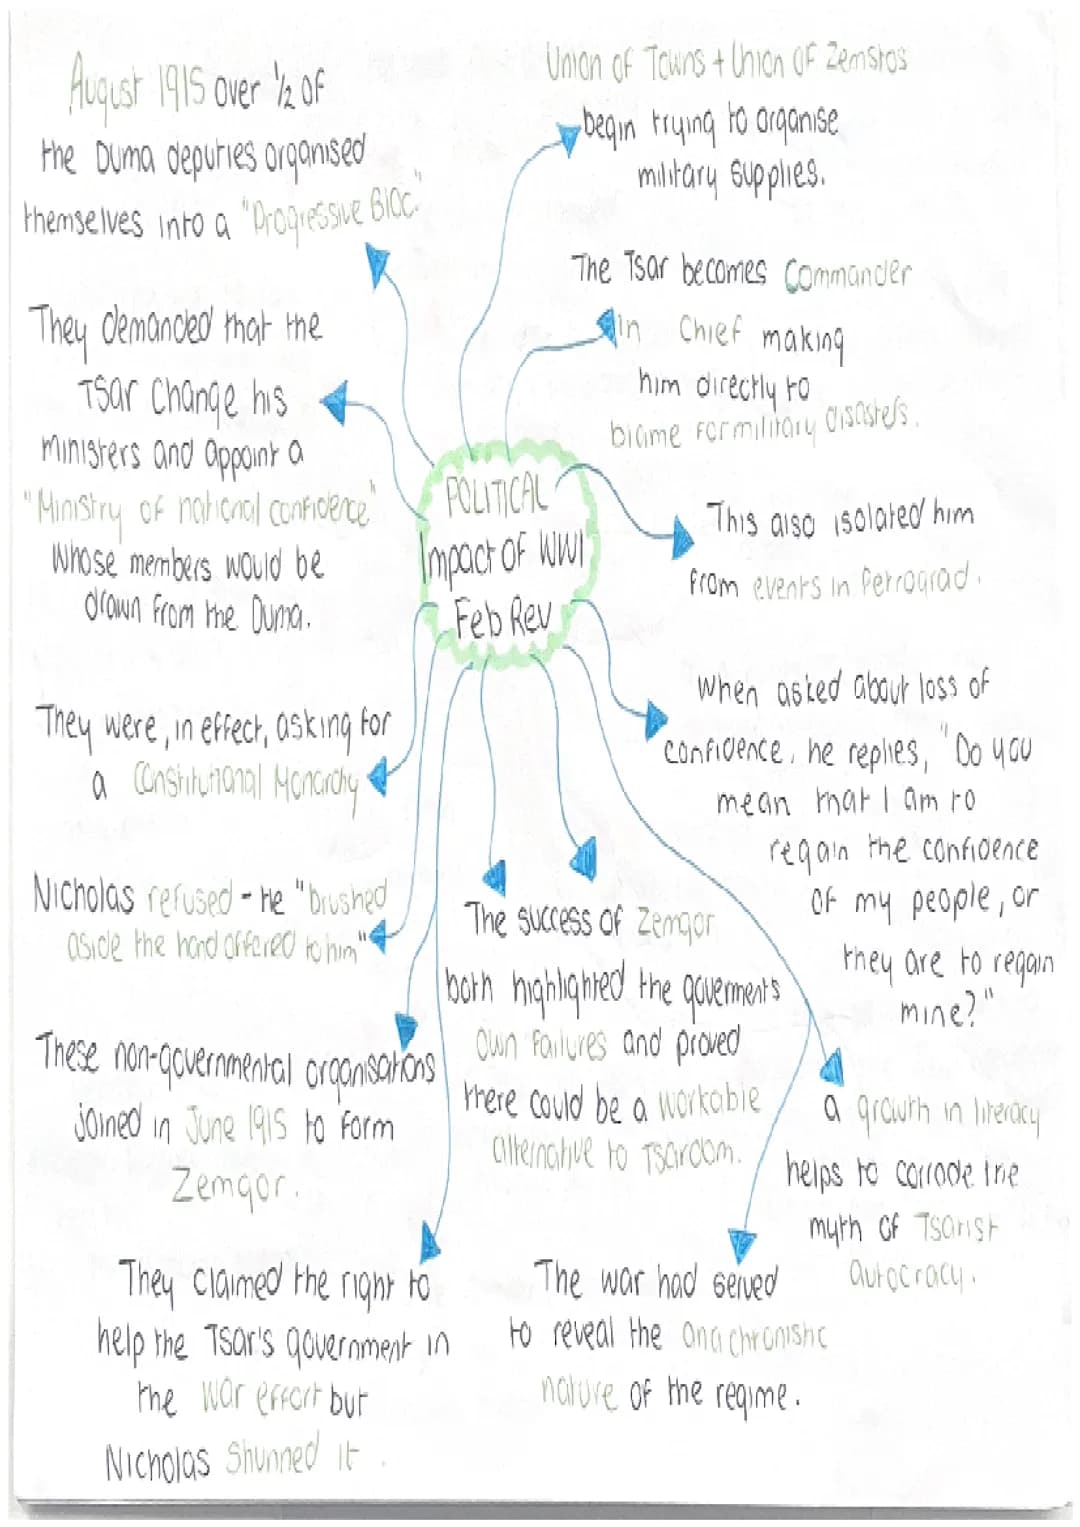 August 1915 over 1/2 of
the Duma deputies organised
themselves into a "Progressive Bloc."
They demanded that the
Tsar change his
ministers and appoint a
"Ministry of national confidence"
whose members would be
drawn from the Duma.
They were, in effect, asking for
a Constitutional Monarchy
Nicholas refused - he "brushed
aside the hand offered to him"
These non-governmental organisations
joined in June 1915 to form
Zemgor.
They claimed the right to
help the Tsar's government in
the war effort but
Nicholas shunned it.
POLITICAL
Impact OF WWI
Feb Rev
Union of Towns + Union of Zemstvos
begin trying to organise
military supplies.
The Tsar becomes Commander
In Chief making
him directly to
blame for military disasters.
This also isolated him
from events in Petrograd.
When asked about loss of
confidence, he replies, "Do you
mean that I am to
regain the confidence
of my people, or
they are to regain
mine?"
The success of Zemgor
both highlighted the goverments
own failures and proved
there could be a workable
alternative to Tsardom.
a growth in literacy
helps to corrode the
myth of Tsarist
autocracy.
The war had served
to reveal the anachronistic
nature of the regime.